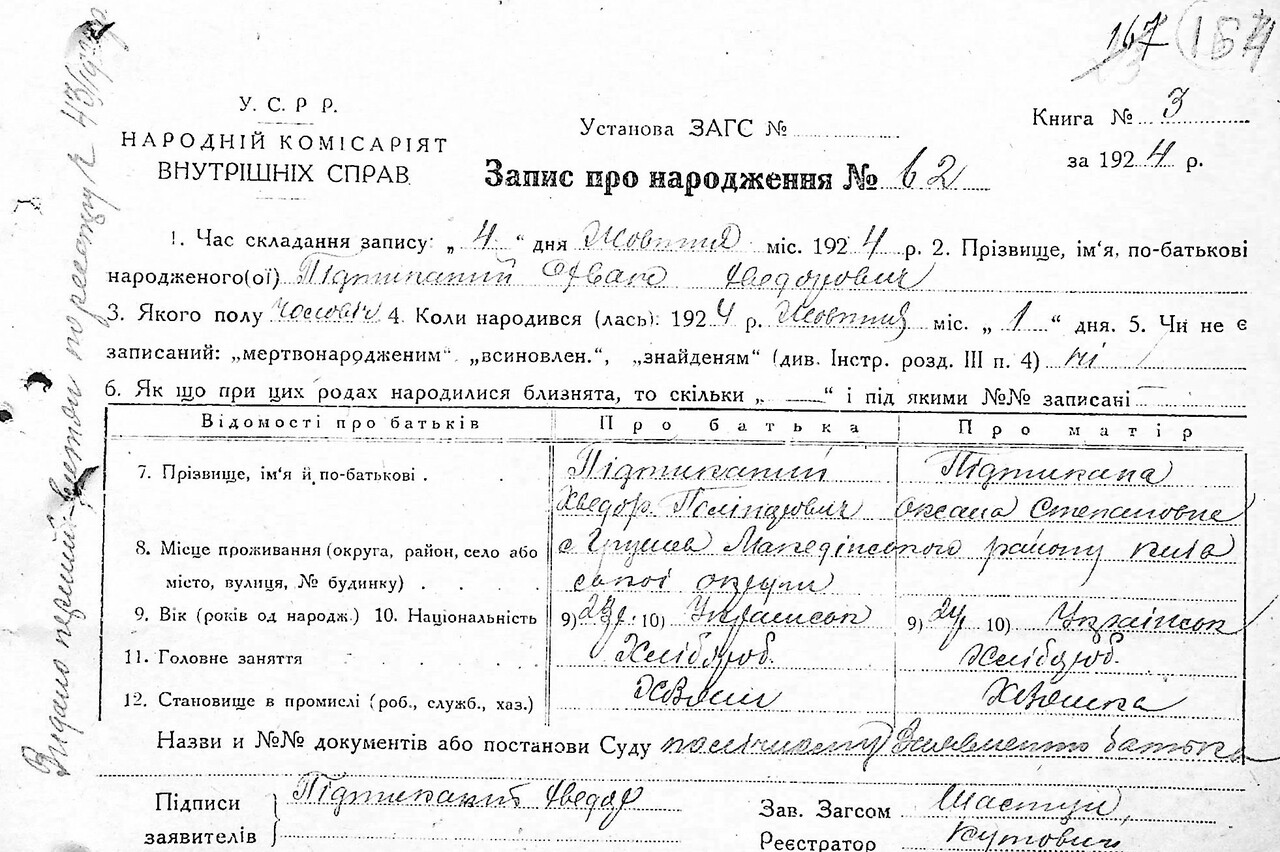 167 154
У. С. Р Р.
НАРОДНІЙ КОМІСАРІЯТ
ВНУТРІШНІХ СПРАВ
Установа ЗАГС №
Книга № 3
за 1924 р.
Запис про народження № 62
1. Час складання запису: „ 4 “ дня Жовтня міс. 1924 р. 2. Прізвище, ім‘я, по-батькові
народженого(ої) Підтиканий Іван Хведорович
3. Якого полу чоловіч 4. Коли народився (лась): 1924 р. Жовтня міс. „ 1 “ дня. 5. Чи не є
записаний: „мертвонародженим“ „всиновлен.“, „знайденям“ (див. Інстр. розд. III п. 4) ні
6. Як що при цих родах народилися близнята, то скільки „ — “ і під якими №№ записані —
Відомості про батьків Про батька Про матір
7. Прізвище, ім'я й по-батькові . . Підтиканий Підтикана
Хведор Оксана Степановна
8. Місце проживання (округа, район, село або с Грушів Македінського району Київ
місто, вулиця, № будинку) . . . ської округи
9. Вік (років од народж.) 10. Національність 9) 10) Українськ 9) 24 10) Українськ
11. Головне заняття . . . . Хлібороб. Хлібороб.
12. Становище в промислі (роб., служб., хаз.) Хазяин Хазяйка
Назви и №№ документів або постанови Суду Заявлению батька
Підписи Підтиканий Хведор Зав. Загсом
заявителів Реєстратор Кутович
Видано перший витяг по реєстру №